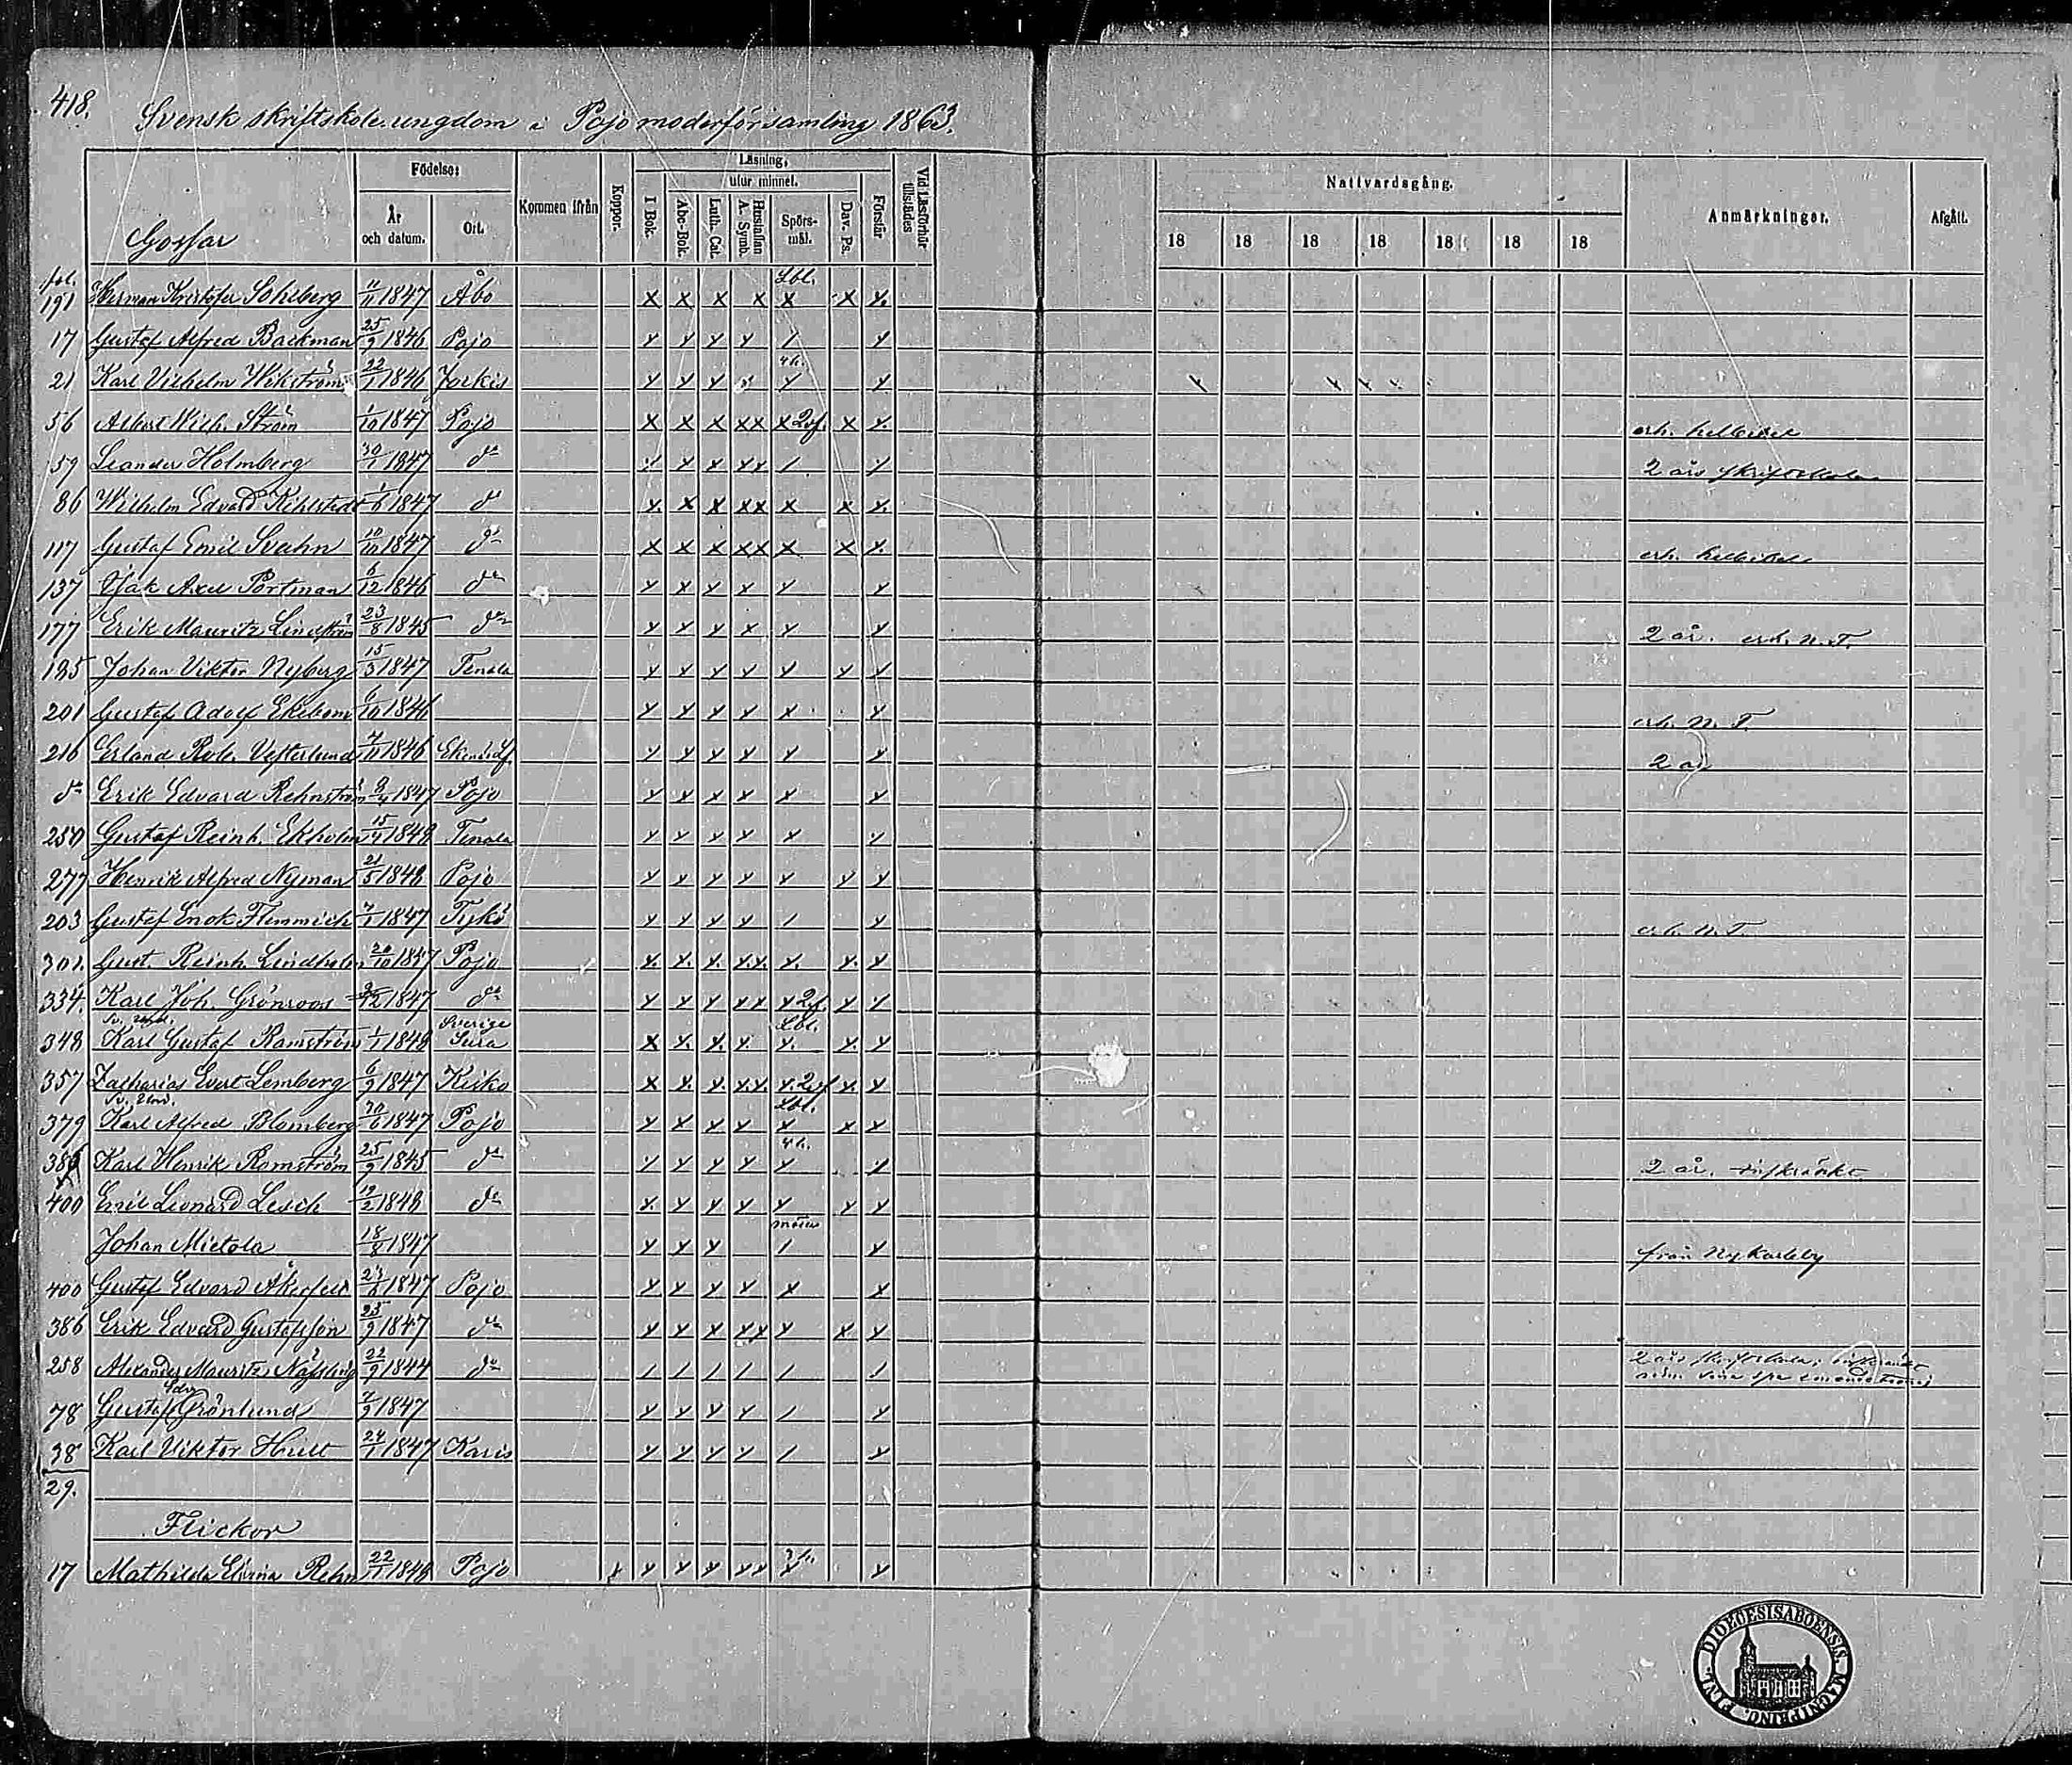 418.
Svensk skriftskole-ungdom i Pojo moderförsamling 1863.
Gossar
Födelse:
År och datum.
Ort.
Kommen ifrån
Koppor.
Läsning,
utur minnet.
I Bok.
Abc-Bok.
Luth. Cat.
Hustaflan A. Symb.
Spörs-mål.
Dav. Ps.
Förstår
Vid Läsförhör tillstädes
Nattvardsgång.
18 18 18 18 18 18 18
Anmärkningar.
Afgått.
fol. Lbl.
191 Herman Kristofer Sohlberg 11/11 1847 Åbo x x x x x x x
17 Gustaf Alfred Backman 25/9 1846 Pojo
21 Karl Vilhelm Wikström 22/1 1846 Jockis 4 h.
56 Albert Wilh. Ström 1/10 1847 Pojo x x x x x x x x erh. hel bibel
59 Leander Holmberg 30/1 1847 do 2 års skriftskola
86 Wilhelm Edvard Kihlstedt 1/6 1847 do x x x x x x x x
117 Gustaf Emil Svahn 10/10 1847 do x x x x x x x x erh. hel bibel
137 Isak Axel Portman 6/12 1846 do
177 Erik Mauritz Lindström 23/8 1845 do 2 år. erh. N. T.
195 Johan Viktor Nyberg 15/3 1847 Tenala
201 Gustaf Adolf Ekebom 6/10 1846 erh. N. T.
216 Erland Rob. Vesterlund 7/11 1846 Ekenäs lf. 2 år
do Erik Edvard Rehnström 9/4 1847 Pojo
250 Gustaf Reinh. Ekholm 15/4 1848 Tenala
277 Henrik Alfred Nyman 21/5 1848 Pojo
203 Gustaf Enok Flemmich 7/1 1847 Tykö erh. N. T.
301. Gust. Reinh. Lindholm 20/10 1847 Pojo
334. Karl Joh. Grönroos 1847 do
348 Karl Gustaf Ramström 1/1 1848 Sverige Sura Lbl.
357 Zacharias Evert Lemberg 6/9 1847 Kisko
379 Karl Alfred Blomberg 30/6 1847 Pojo Lbl.
386 Karl Henrik Ramström 25/9 1845 do 4 h. 2 år.
400 Emil Leonard Lesch 19/2 1848 do
Johan Mietola 18/8 1847 från Ny Karleby
400 Gustaf Edvard Åkerfelt 1847 Pojo
386 Erik Edvard Gustafsson 25/9 1847 do
258 Alexander Mauritz Nässling 22/9 1844 do 2 års skriftskola,
78 Gustaf Edv. Grönlund 7/9 1847
38 Karl Viktor Hult 24/1 1847 Karis
29.
Flickor
17 Mathilda Rehn 22/1 1848 Pojo
DIOECESIS ABOENSIS. MAGNI PRINC. FINL.